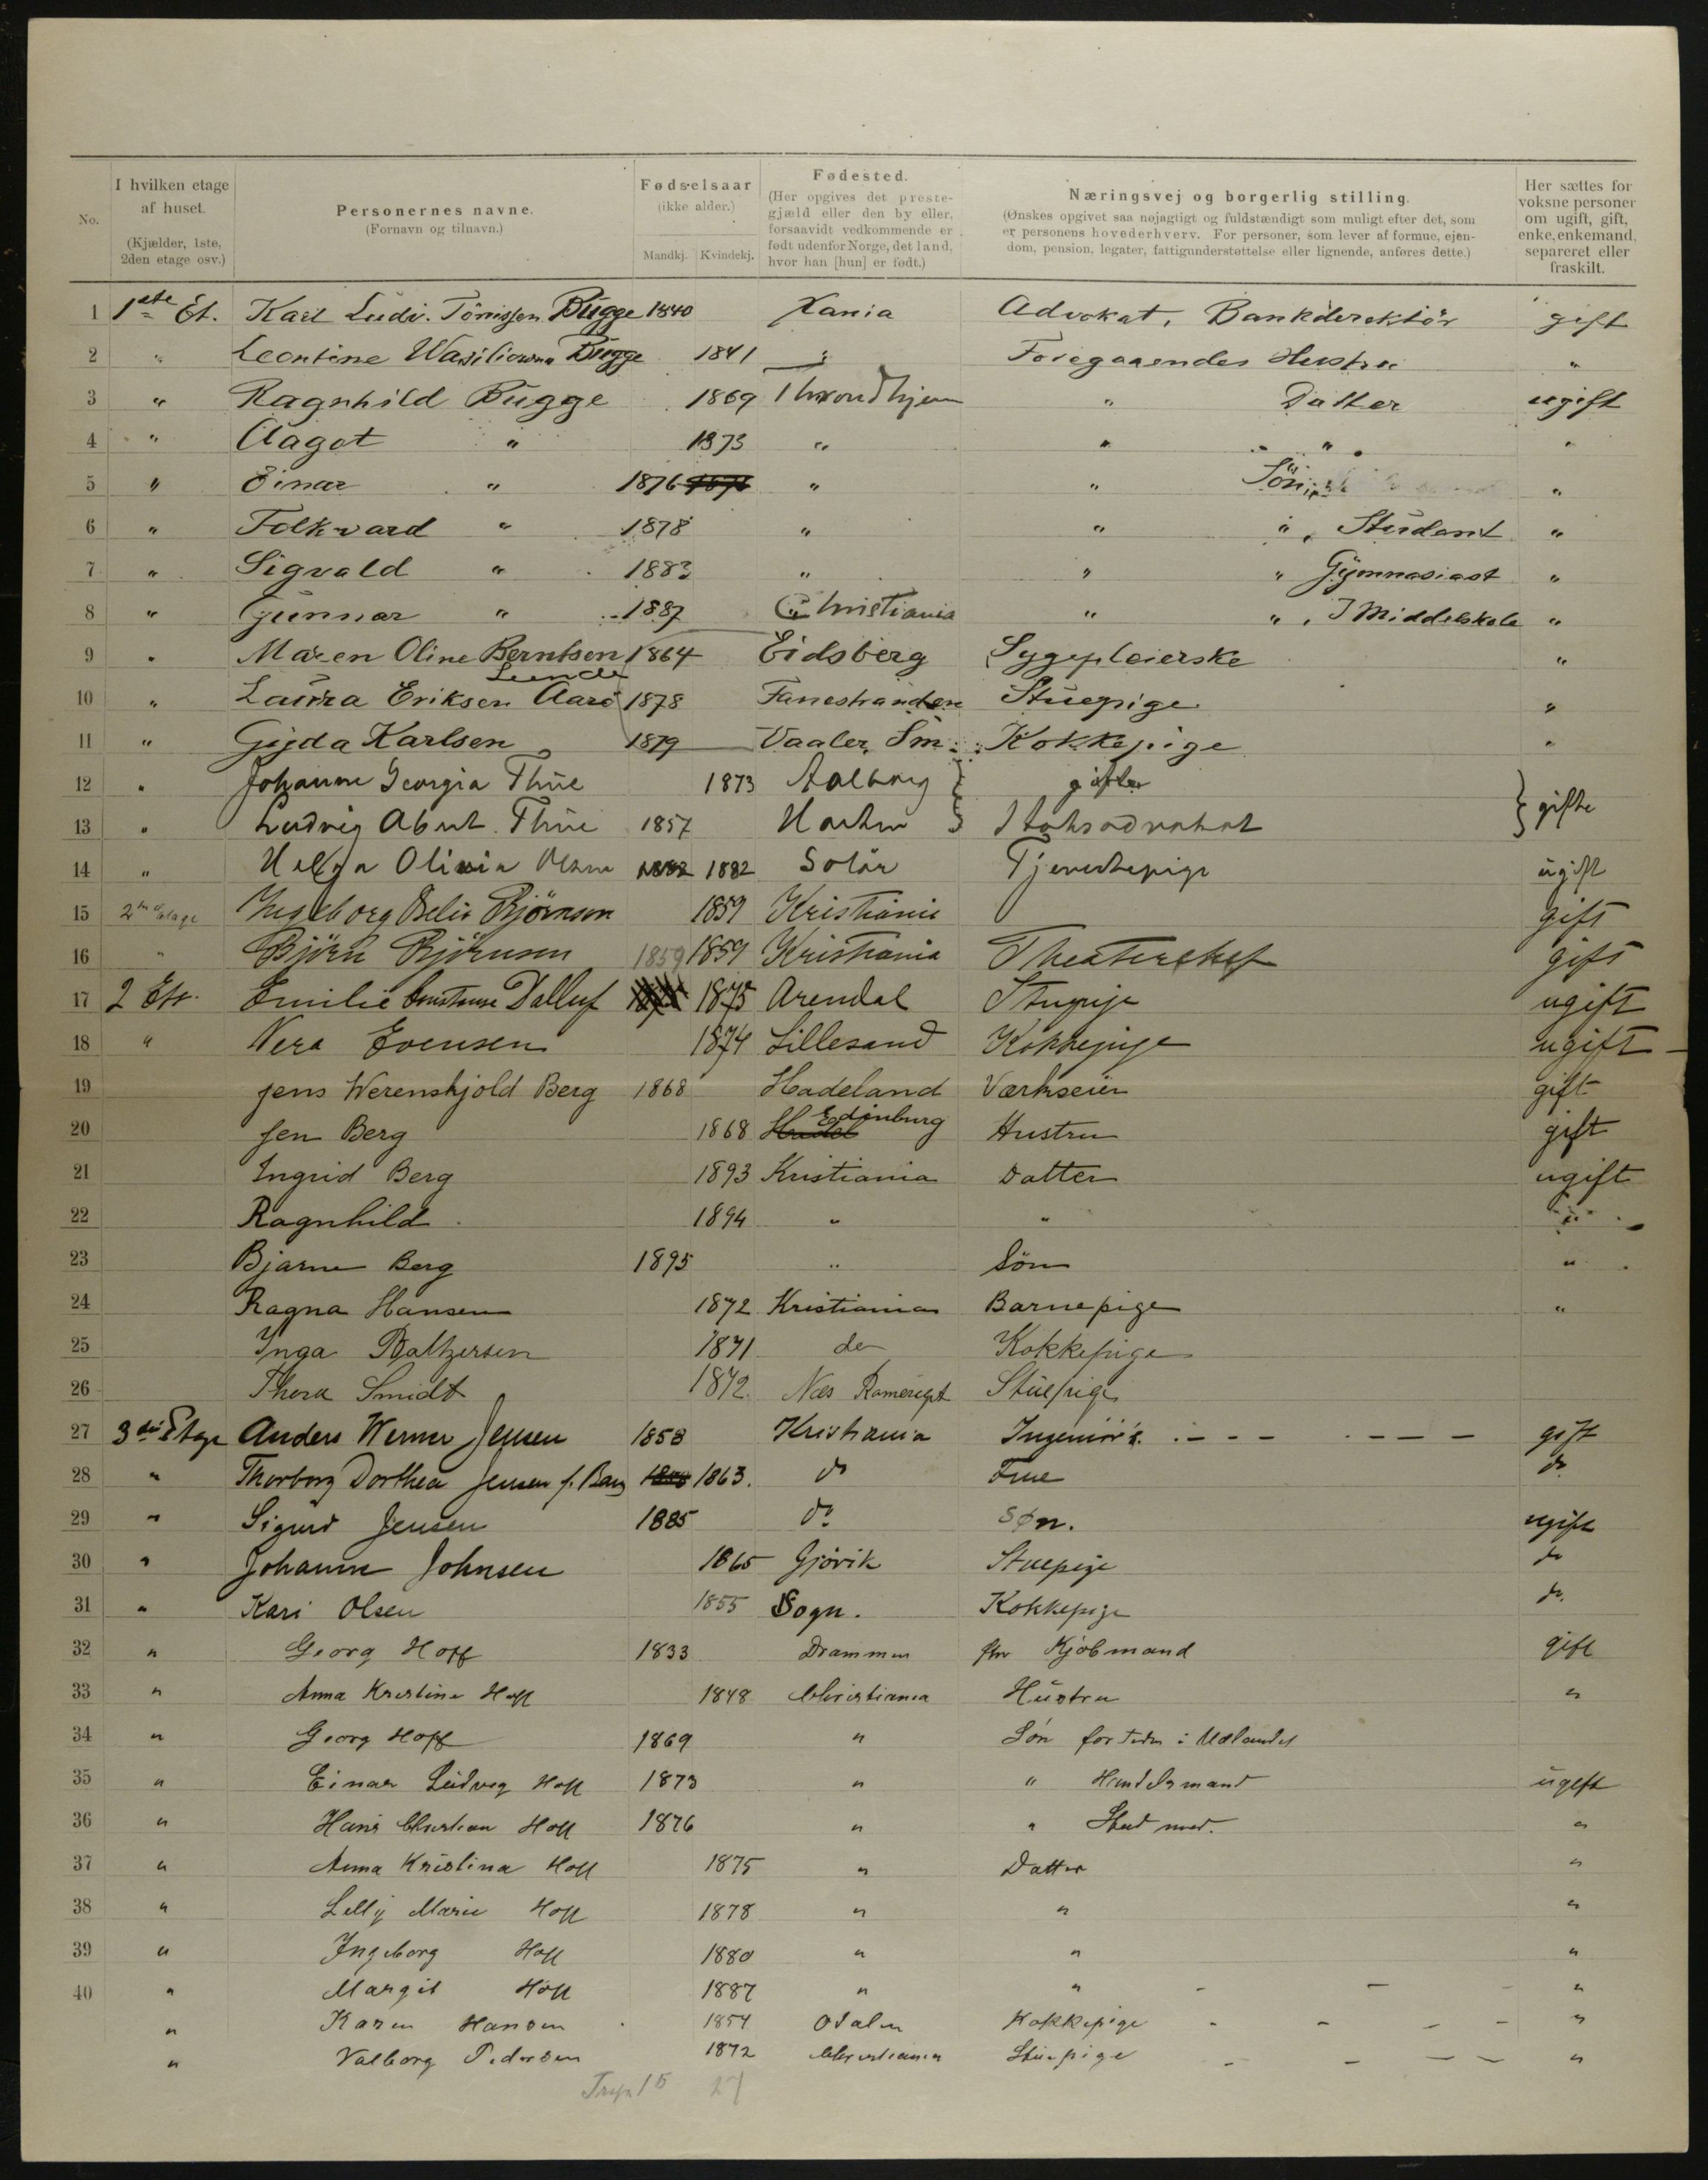 No. | I hvilken etage af huset. (Kjælder, 1ste, 2den etage osv.) | Personernes navne. (Fornavn og tilnavn.) | Fødselsaar (ikke alder.) Mandkj. Kvindekj. | Fødested. (Her opgives det prestegjæld eller den by eller, forsaavidt vedkommende er født udenfor Norge, det land, hvor han [hun] er født.) | Næringsvej og borgerlig stilling. (Ønskes opgivet saa nøjagtigt og fuldstændigt som muligt efter det, som er personens hovederhverv. For personer, som lever af formue, ejendom, pension, legater, fattigunderstøttelse eller lignende, anføres dette.) | Her sættes for voksne personer om ugift, gift, enke, enkemand, separeret eller fraskilt.
1 1ste Et. Karl Ludv. Tönissen Bugge 1840 Xania Advokat, Bankdirektör gift
2 " Leontine Wasiliowna Bugge 1841 " Foregaaendes Hustru "
3 " Ragnhild Bugge 1869 Throndhjem " Datter ugift
4 " Aagot " 1873 " " " "
5 " Einar " 1876 1876 " " Sön "
6 " Folkvard " 1878 " " ", Student "
7 " Sigvald " 1883 " " " Gymnasiast "
8 " Gunnar " 1887 Christiania " ", I Middelskole "
9 " Maren Oline Berntsen 1864 Eidsberg Sygepleierske "
Lunde
10 " Laura Eriksen Aarö 1878 Fanestranden Stuepige "
11 " Gyda Karlsen 1879 Vaaler, Sm. Kokkepige "
12 " Johanne Georgia Thue 1873 Aalborg gifte
13 " Ludvig Thue 1857 Statsadvokat gifte
14 " Helga Olivia Olsen 1882 1882 Solör Tjenestepige ugift
15 2n etage Ingeborg Björnson 1859 Kristiania gift
16 " Björn Björnson 1859 1859 Kristiania Theaterchef gift
17 2 Et. Emilie 1875 Arendal Stuepige ugift
18 " Vera Evensen 1874 Lillesand Kokkepige ugift
19 Jens Werenskjold Berg 1868 Hadeland Værkseier gift
20 Jen Berg 1868 Hadel Edinburg Hustru gift
21 Ingrid Berg 1893 Kristiania Datter ugift
22 Ragnhild 1894 " " "
23 Bjarne Berg 1895 " Sön "
24 Ragna Hansen 1872 Kristiania Barnepige "
25 Inga Baltzersen 1871 do Kokkepige
26 Thora Smidt 1872 Næs Stuepige
27 3die Etage Anders Werner Jensen 1858 Kristiania Ingeniör gift
28 " Thorborg Dorthea Jensen f. Bang 1863. do Frue do
29 " Sigurd Jensen 1885 do Søn. ugift
30 " Johanne Johnsen 1865 Gjövik Stuepige do
31 " Kari Olsen 1855 Sogn. Kokkepige do
32 " Georg Hoff 1833 Drammen fhv Kjöbmand gift
33 " Anna Kristine Hoff 1848 Christiania Hustru "
34 " Georg Hoff 1869 " Sön for Tiden i Udlandet
35 " Einar Ludvig Hoff 1873 " " Handelsmand ugift
36 " Hans Christian Hoff 1876 " " Stud med. "
37 " Anna Kristina Hoff 1875 " Datter "
38 " Lelly Marie Hoff 1878 " " "
39 " Ingeborg Hoff 1880 " " "
40 " Margit Hoff 1887 " " "
" Karen Hansen 1854 Odalen Kokkepige "
" Valborg Pedersen 1872 Christiania Stuepige "
15 27